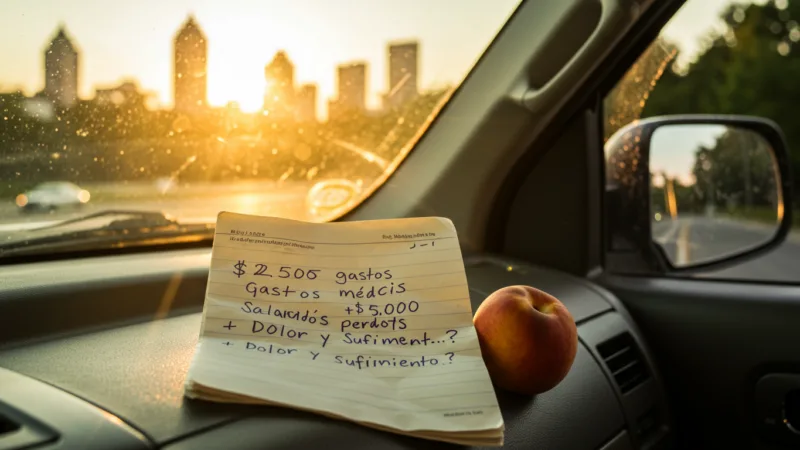 $2506 gastos
Gastos médcis
+$5.000
Salarudós perdots
+ Dolor y Sufiment...?
+ Dolor y Sufiimiento?